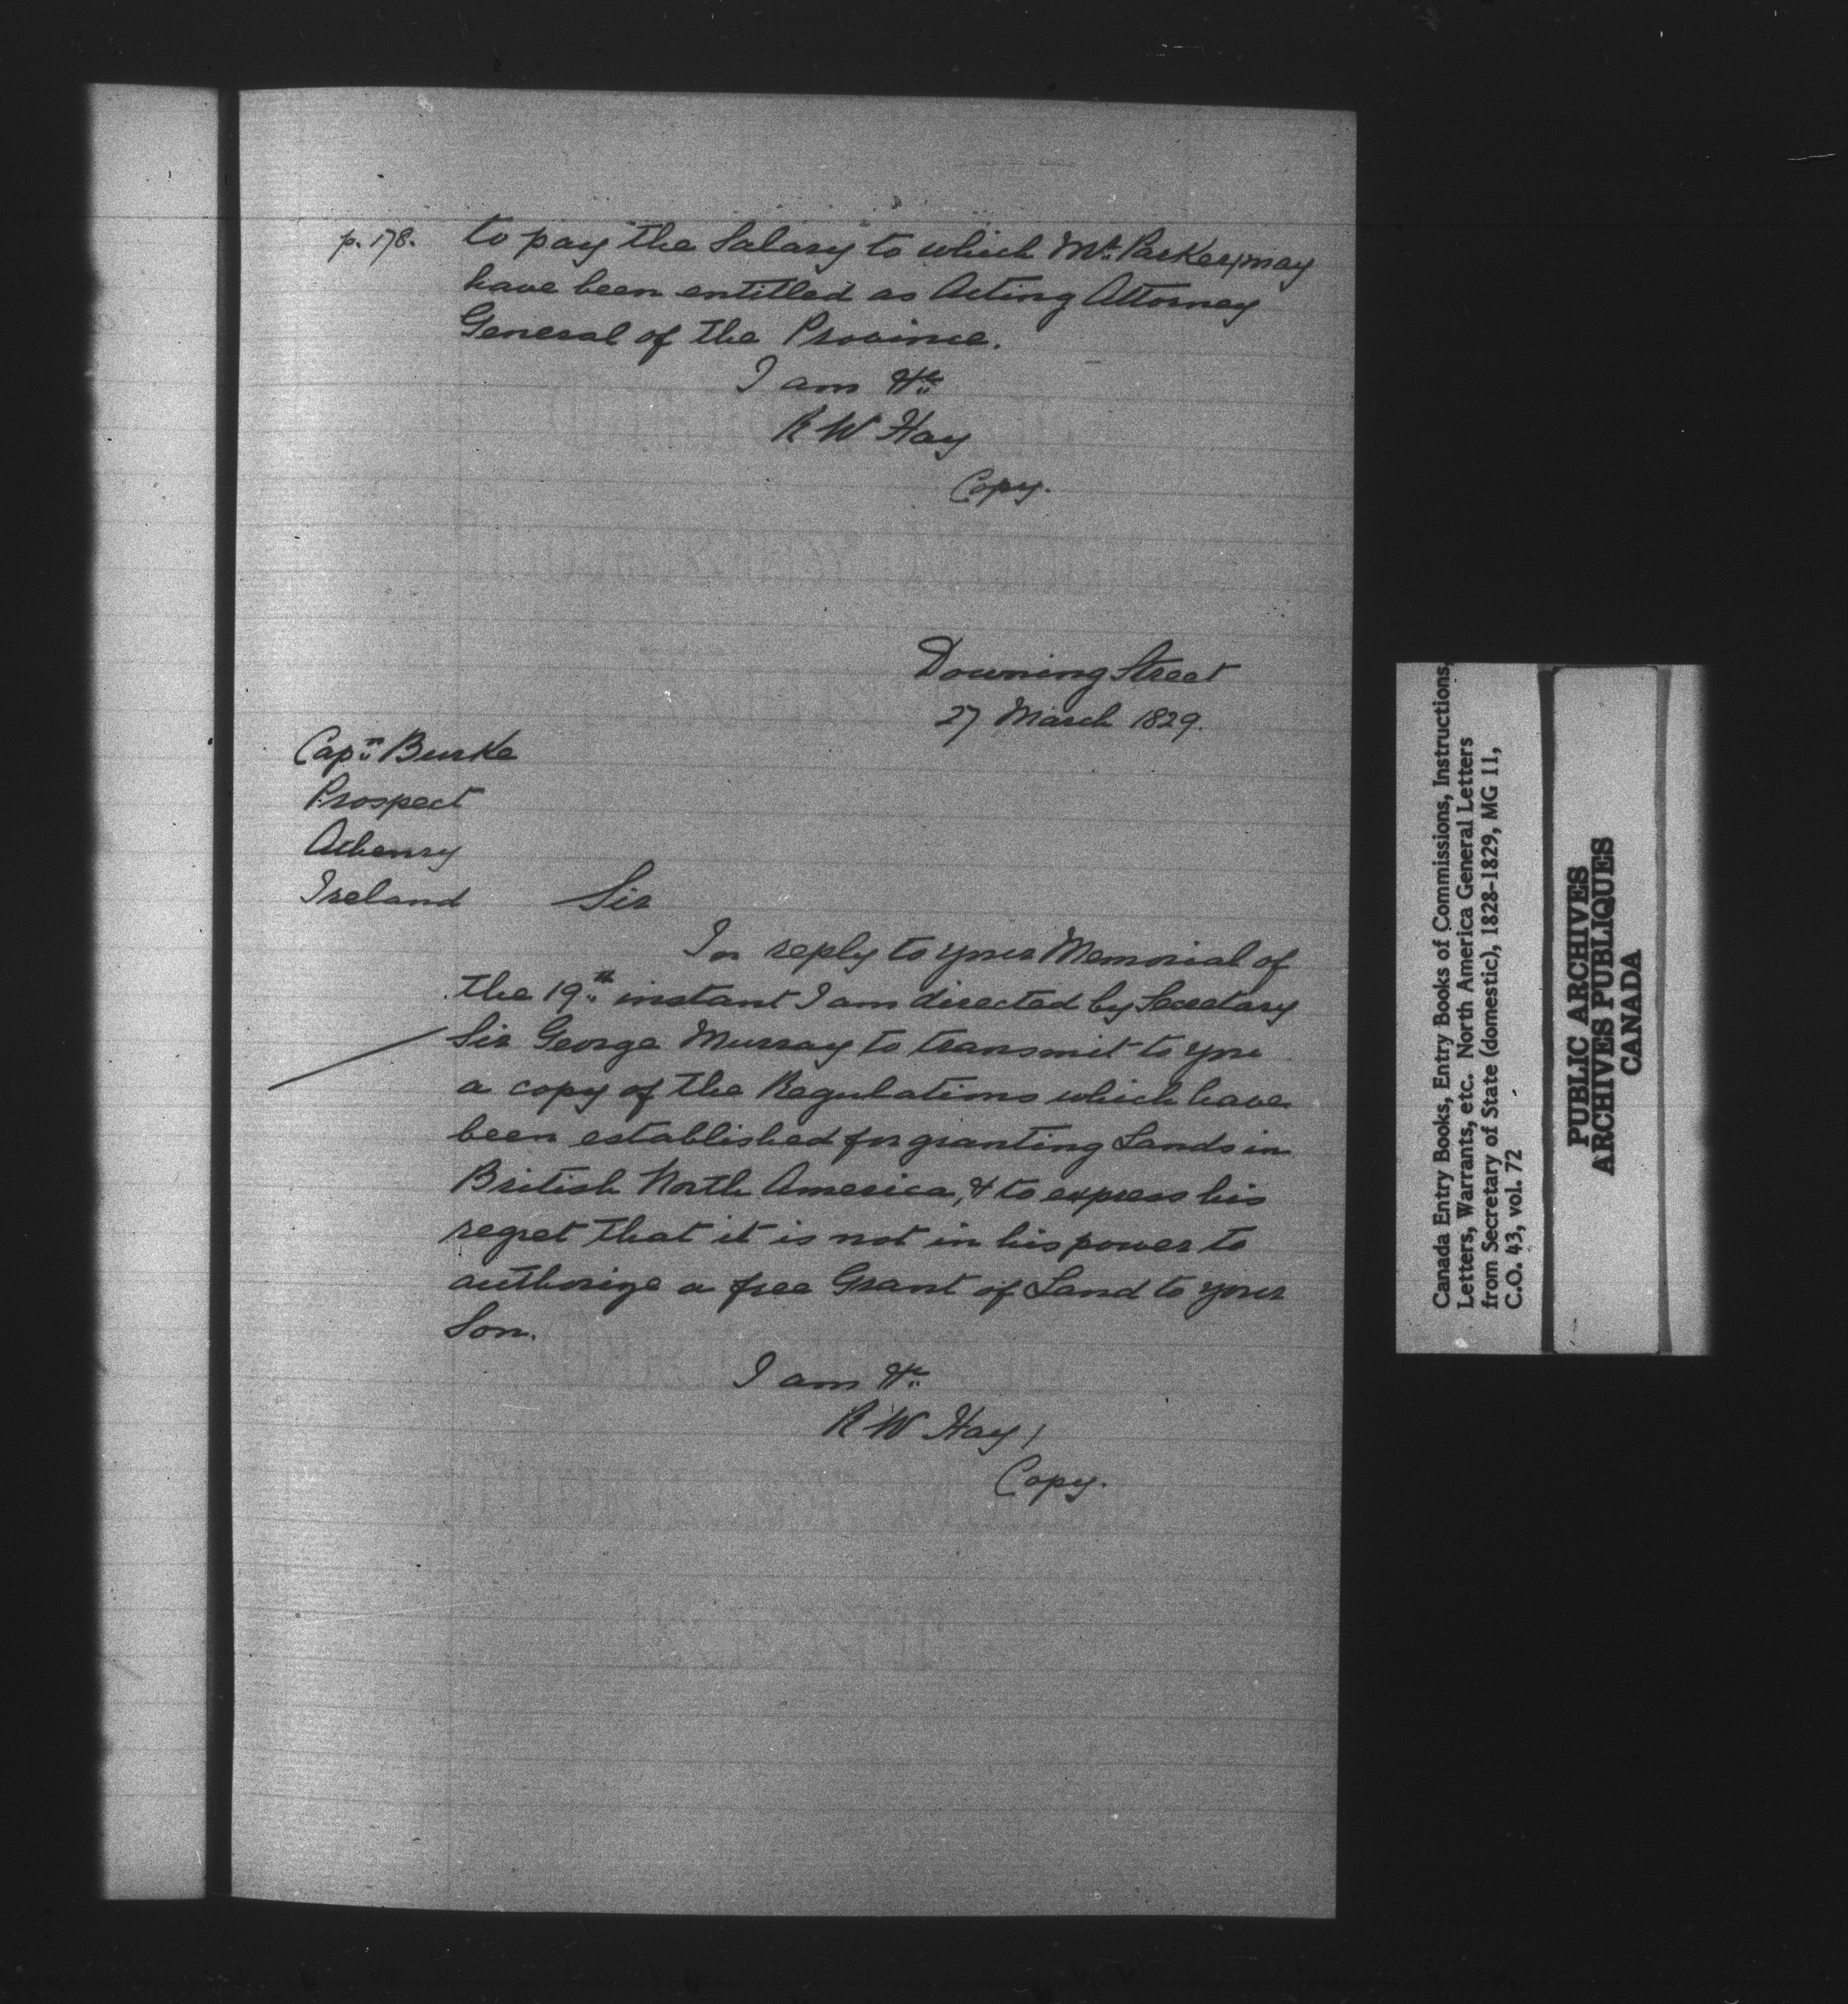 p. 178. to pay the Salary to which Mr. Parker may
have been entitled as Acting Attorney
General of the Province.
I am &c
R W Hay
Copy.
Downing Street
27 March 1829.
Capn Burke
Prospect
Athenry
Ireland
Sir
In reply to your Memorial of
the 19th instant I am directed by Secretary
Sir George Murray to transmit to you
a copy of the Regulations which have
been established for granting Lands in
British North America, & to express his
regret that it is not in his power to
authorize a free Grant of Land to your
Son.
I am &c
R W Hay
Copy.
Canada Entry Books, Entry Books of Commissions, Instructions,
Letters, Warrants, etc. North America General Letters
from Secretary of State (domestic), 1828-1829, MG 11,
C.O. 43, vol. 72
PUBLIC ARCHIVES
ARCHIVES PUBLIQUES
CANADA